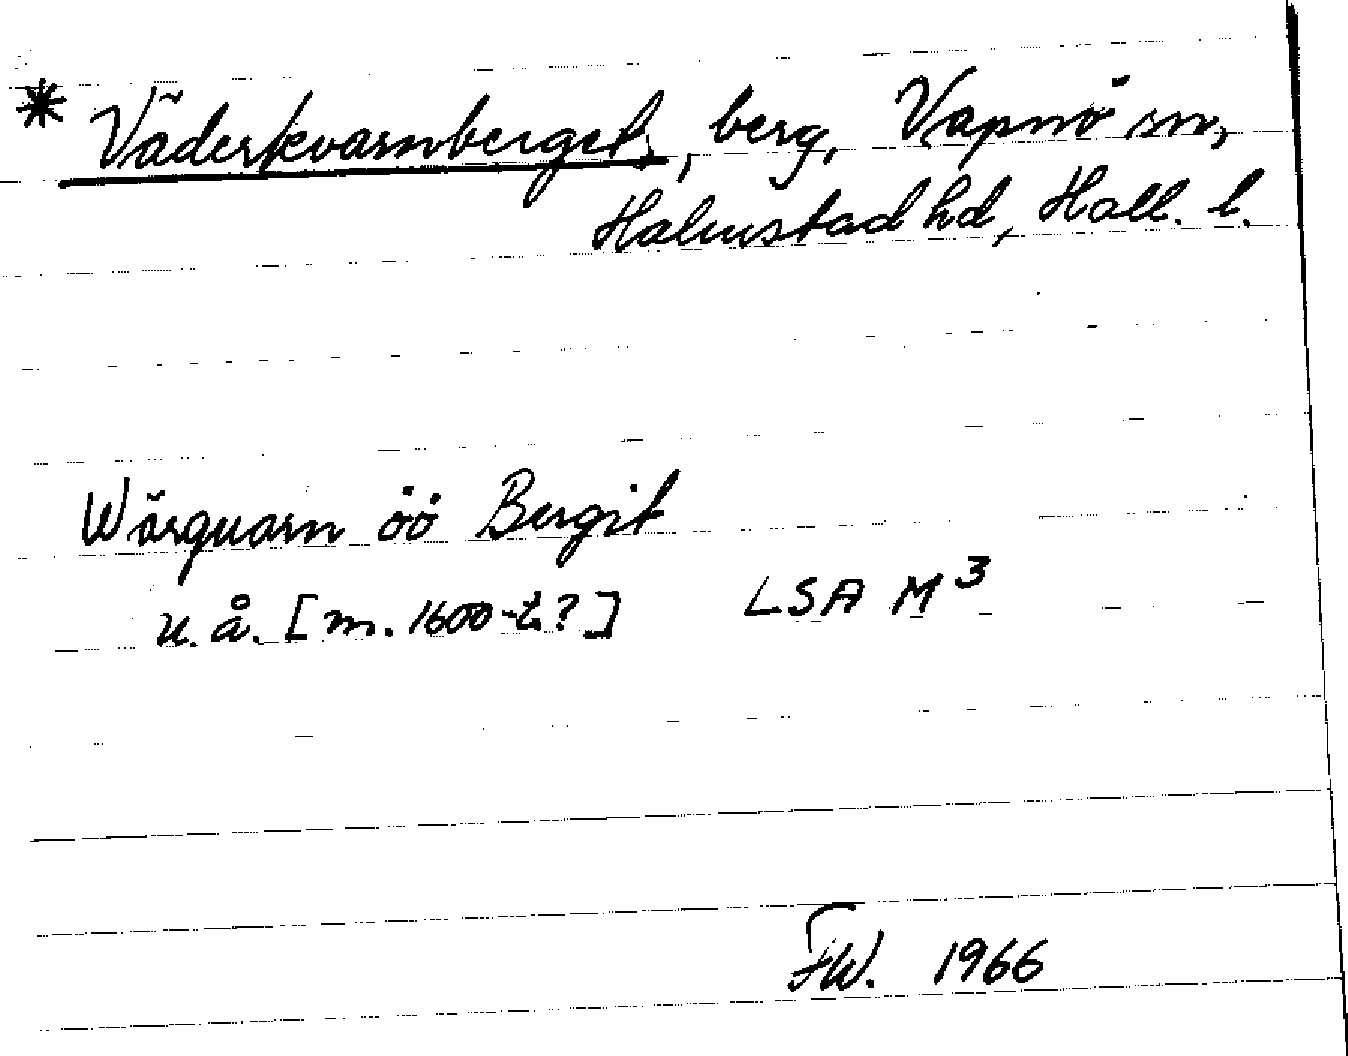 * Väderkvarnberget, berg, Vapnö sn,
Halmstad hd, Hall. l.
Wärquarn öö Bergit
u.å. [m. 1600-t.?] LSA M³
FW. 1966